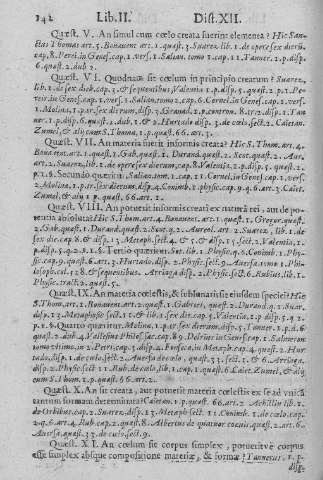 142 Lib. II. Dist. XII.
Quæst. V. An simul cum cœlo creata fuerint elementa? Hic San-
ctus Thomas art. 3. Bonavent. art. 1. quæst. 3. Suarez lib. 1. de opere sex dierũ.
cap. 8. Perei. in Genes. cap. 1. vers. 1. Salian. tomo 1. cap. 11. Tanner. 1. p. disp.
6. quæst. 2. dub. 2.
Quæst. VI. Quodnam sit cœlum in principio creatum? Suarez,
lib. 1. de sex dieb. cap. 3. & sequentibus, Valentia 1. p. disp. 5. quæst. 2. p. 1. Pe-
rer. in Genes. cap. 1. vers. 1. Salian. tomo 2. cap. 6. Cornel. in Genes. cap. 1. vers.
1. Molina, 1. p. tr. sex dierum, disp. 3.
p. disp. 6. quæst. 2. dub. 1. & 2. Hurtado disp. 1. de cœlo, sect. 2. Caietan.
Zumel, & alij cum S. Thoma, 1. p. quæst. 66. art. 3.
Quæst. VII. An materia fuerit informis creata? Hic S. Thom. art. 4.
Bonavent. art. 1. quæst. 3. Gab. quæst. 1. Durand. quæst. 2. Scot. quæst. 2. Aur.
art. 2. Suarez, lib. 1. de opere sex dierum, cap. 8. Valentia, 1. p. disp. 5. quæst. 2.
p. 1. §. Secundò quæritur. Salian. tom. 1. cap. 11. Cornel. in Genes. cap. 1. vers.
2. Molina, 1. p. tr. sex dierum, disp. 4. Conimb. 1. physic. cap. 9. q. 6. art. 3. Caiet.
Zumel, & alij 1. p. quæst. 66. art. 2.
Quæst. VIII. An potuerit informis creari ex natura rei, aut de po-
tentia absoluta? Hic S. Thom. art. 4. Bonavent. art. 1. quæst. 1. Gregor. quæst.
2. Gab. quæst. 1. Durand. quæst. 2. Scot. q. 2. Aureol. art. 2. Suarez, lib. 1. de
sex die. cap. 8. & disp. 13. Metaph. sect. 4. & 5. & disp. 15. sect. 2. Valentia, 1.
p. disp. 5. q. 2. p. 1. §. Tertiò quæritur. Sot. lib. 1. Physic. q. 6. Conimb. 1. Phy-
sic. cap. 9. quæst. 6. art. 3. Hurtado, disp. 2. Physic. sect. 9. Aversa tomo 1. Phi-
losoph. col. 128. & sequentibus. Arriaga disp. 2. Physic. sect. 6. Rubius, lib. 1.
Physic. tract. 2. quæst. 5.
Quæst. IX. An materia cœlestis, & sublunaris sit eiusdem speciei? Hic
S. Thom. art. 1. Bonavent. art. 2. quæst. 1. Gabriel, quæst. 2. Durand. q. 2. Suar.
disp. 13. Metaphysic. sect. 11. & lib. 1. de sex die. cap. 3. & 5. Valentia, 1. p. disp. 5. q. 2.
p. 1. §. Quartò quæritur. Molina, 1. p. tr. sex dierum, disp. 5. Tanner 1. p. d. 6.
quæst. 2. dub. 4.
cap. 8. 9. Delrius in Genes. cap. 1. Salmeron
tado, disp. 1. de cœlo, sect. 2. Aversa de cælo, quæst. 33. sect. 11. & 6. Arriaga,
disp. 1. cœlest. sect. 3. subsect. 1. Rubius, lib. 1. cap. 1. quæst. 6. Caiet. Zumel, & alij
cum S. Thom. 1. p. quæst. 66. art. 2.
Quæst. X. An sit creata, aut potuerit materia cœlestis ex se ad vnicã
tantum formam determinata? Caietan. 1. p. quæst. 66. art. 2. Achillin. lib. 1.
de Orbibus, cap. 2. Suarez disp. 13. Metaph. sect. 11. Conimb. 1. de cælo, cap.
2. quæst. 6. art. 3. Rub. quæst. 8. Albertus de quatuor coævis, quæst. 2. art. 6.
Aversa, quæst. 33. de cælo sect. 9.
Quæst. XI. An cœlum sit corpus simplex, potueritve corpus
esse simplex absque compositione materiæ, & formæ? Tannerus, 1. p.
disp.